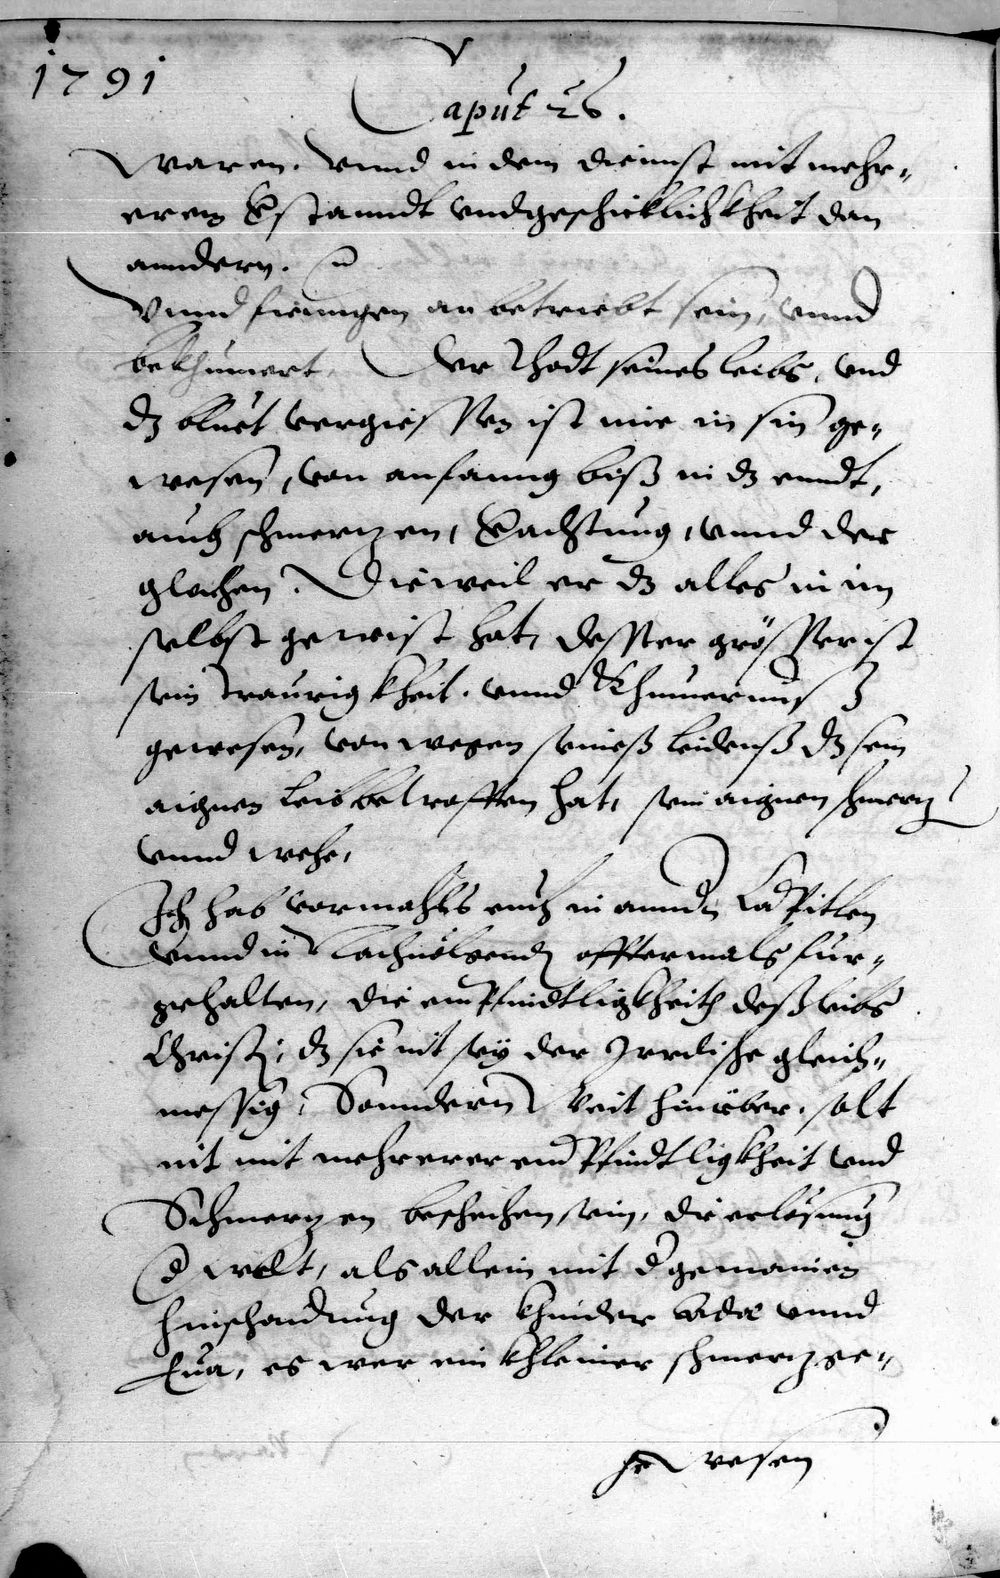 1791
Caput 26.
waren. Vnnd in dem diennst mit mehr-
erem Vstanndt vnd geschicklichkheit dan
anndern.
Vnnd fiengen an betriebt sein, vnnd
bekhumert. Der Thodt seines leibs, vnd
dz bluet vergiessen ist mir in sin ge-
wesen, von anfanng biß in dz enndt,
auch schmerzen, Vachtung, vnnd der
gleichen. Dieweil er dz alles in im
selbst gewist hat, dester grösser ist
sein Traurigkheit. vnnd Khumernuß
gewesen, von wegen seineß leidenß dz sein
aignen leib betroffen hat, sein aignen schmerz
vnnd wehe,
Ich hab vormahls euch in annd Capitlen
vnnd in Nachuolgend offtermals für-
gehalten, die empfindtligkheith deß leibs
Christi, dz sie nit sey der Irrdische gleich-
messig, Sonndern weit hinüber. solt
nit mit mehrerer empfindtligkheit vnd
Schmerzen beschechen sein, die erlösung
d welt, als allein mit d gemainen
hinschaidung der khinder Adæ vnnd
Eua, es wer ein khleiner schmerz ge-
wesen